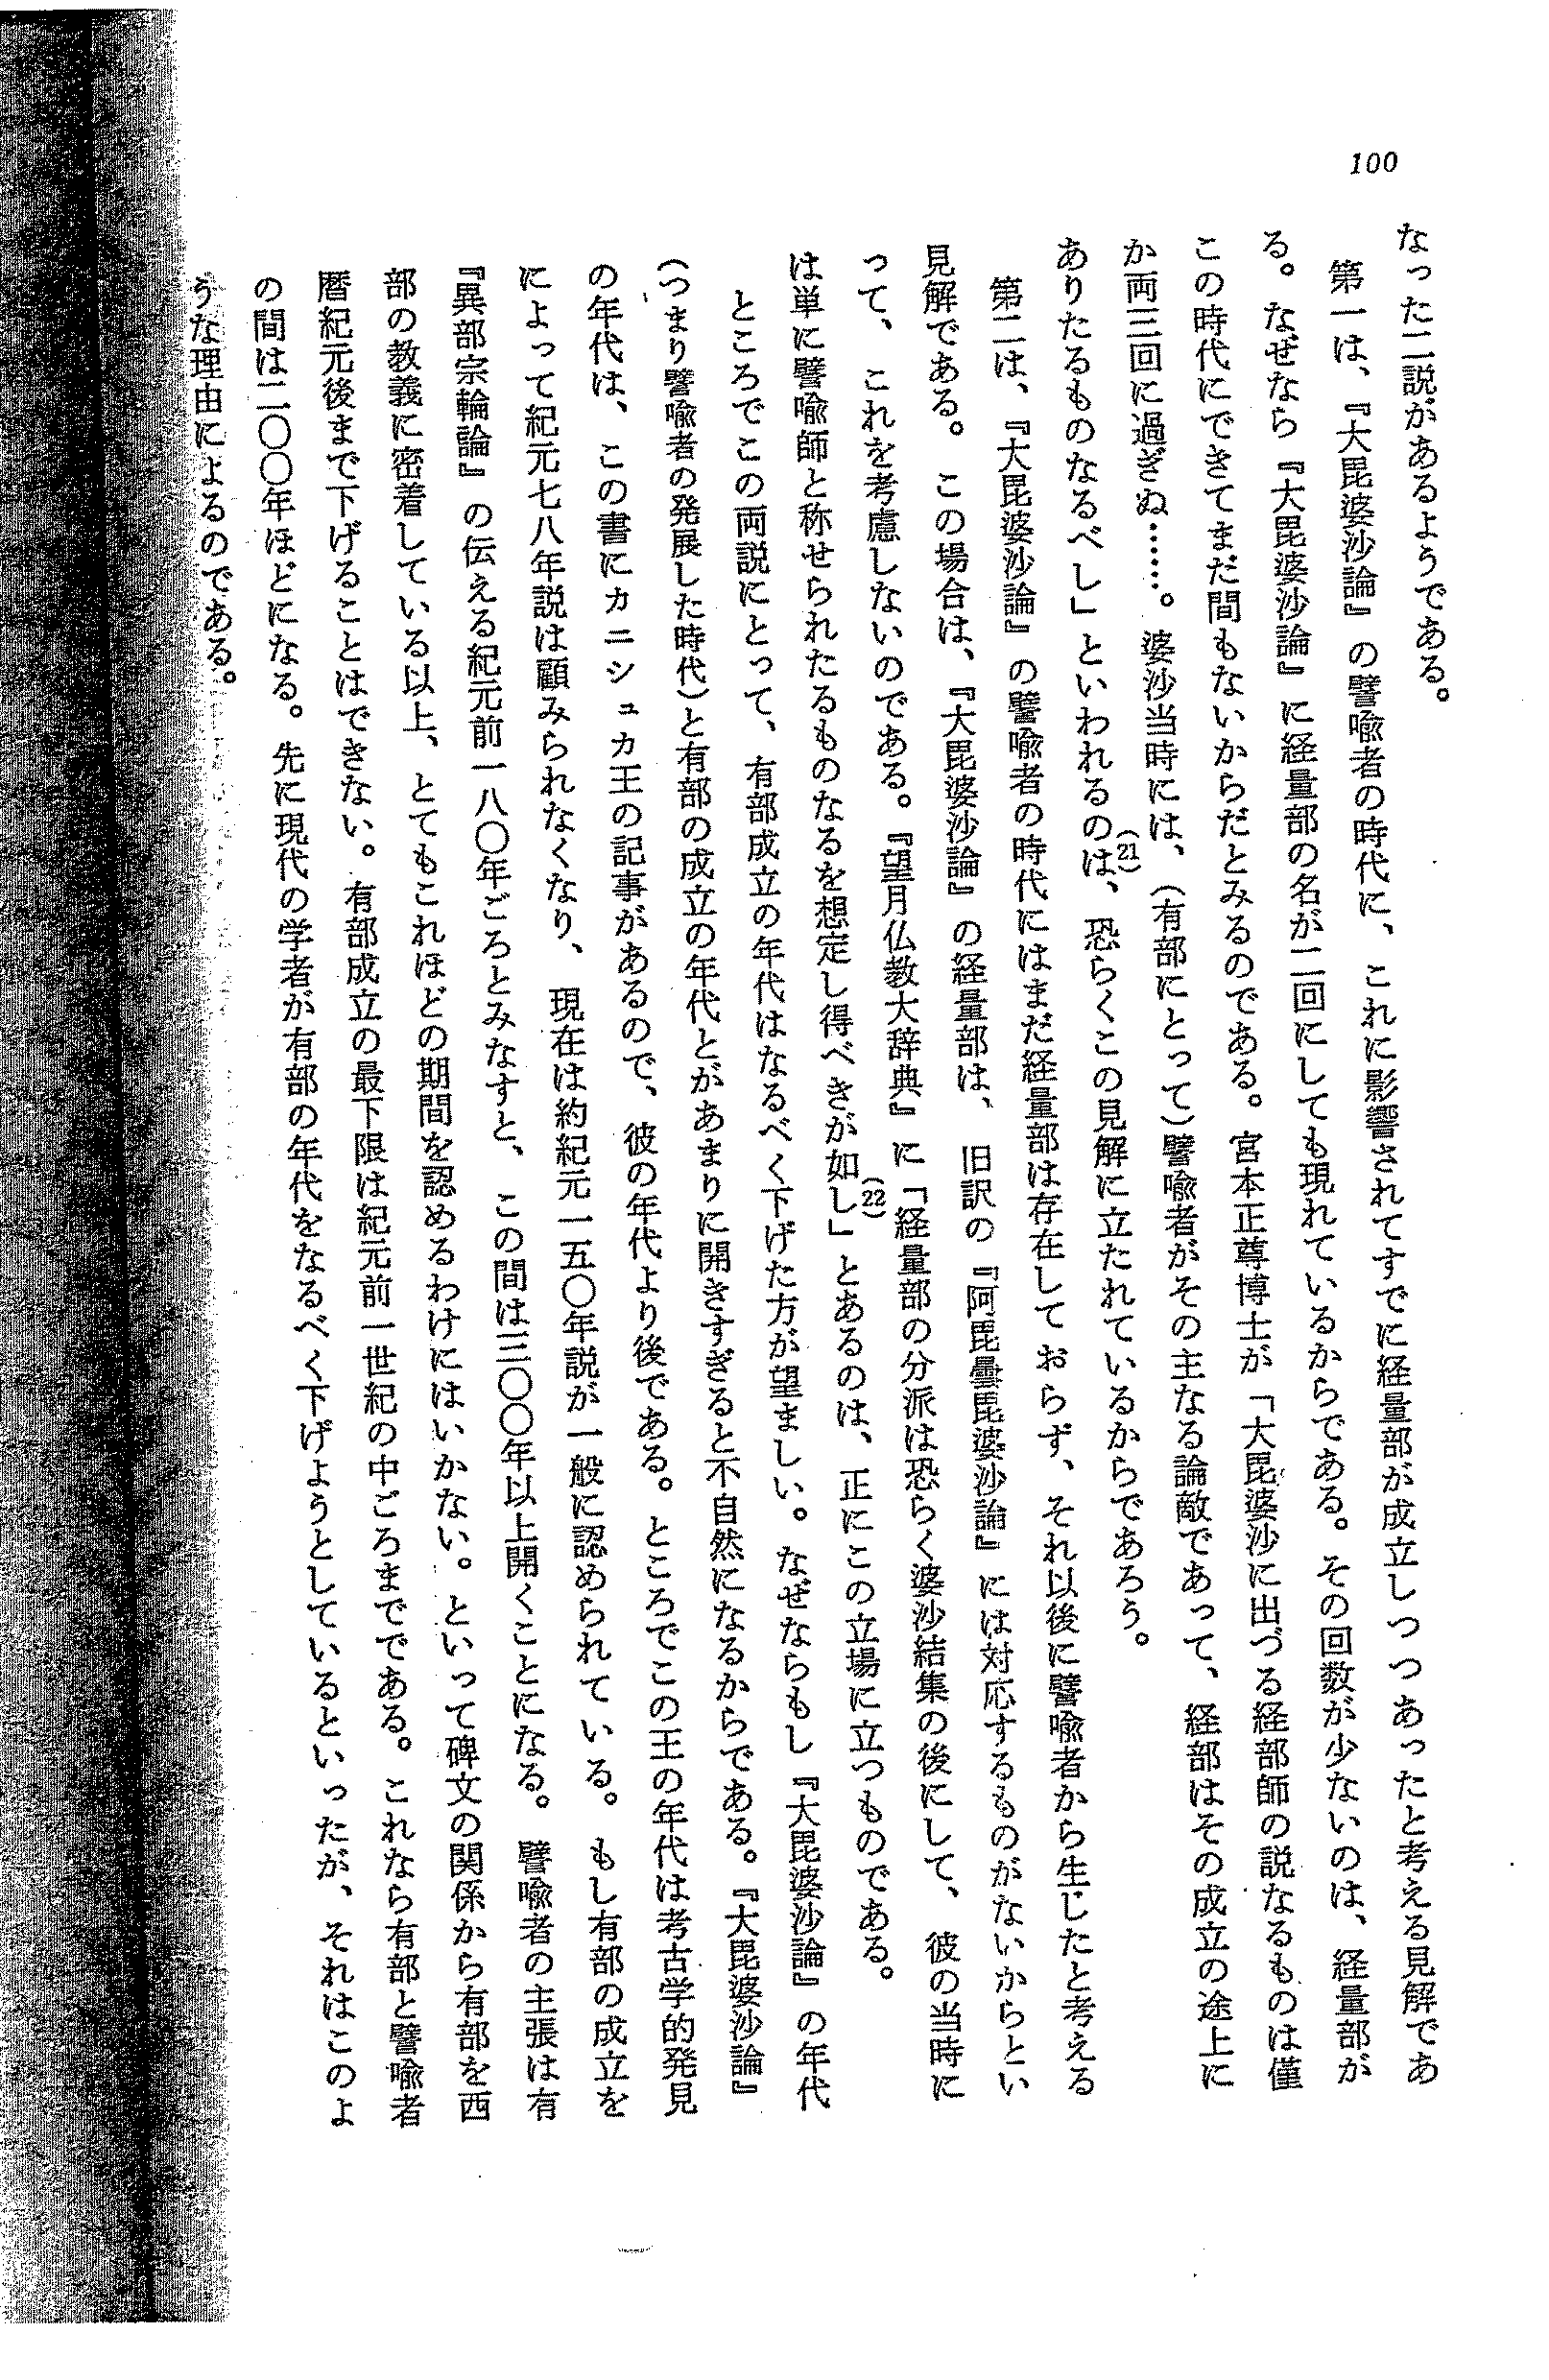 100
なった二説があるようである。
第一は、『大毘婆沙論』の譬喩者の時代に、これに影響されてすでに経量部が成立しつつあったと考える見解であ
る。なぜなら『大毘婆沙論』に経量部の名が二回にしても現れているからである。その回数が少ないのは、経量部が
この時代にできてまだ間もないからだとみるのである。宮本正尊博士が「大毘婆沙に出づる経部師の説なるものは僅
か両三回に過ぎぬ……。婆沙当時には、（有部にとって）譬喩者がその主なる論敵であって、経部はその成立の途上に
ありたるものなるべし」といわれるのは、(21)恐らくこの見解に立たれているからであろう。
第二は、『大毘婆沙論』の譬喩者の時代にはまだ経量部は存在しておらず、それ以後に譬喩者から生じたと考える
見解である。この場合は、『大毘婆沙論』の経量部は、旧訳の『阿毘曇毘婆沙論』には対応するものがないからとい
って、これを考慮しないのである。『望月仏教大辞典』に「経量部の分派は恐らく婆沙結集の後にして、彼の当時に
は単に譬喩師と称せられたるものなるを想定し得べきが如し」(22)とあるのは、正にこの立場に立つものである。
ところでこの両説にとって、有部成立の年代はなるべく下げた方が望ましい。なぜならもし『大毘婆沙論』の年代
（つまり譬喩者の発展した時代）と有部の成立の年代とがあまりに開きすぎると不自然になるからである。『大毘婆沙論』
の年代は、この書にカニシュカ王の記事があるので、彼の年代より後である。ところでこの王の年代は考古学的発見
によって紀元七八年説は顧みられなくなり、現在は約紀元一五〇年説が一般に認められている。もし有部の成立を
『異部宗輪論』の伝える紀元前一八〇年ごろとみなすと、この間は三〇〇年以上開くことになる。譬喩者の主張は有
部の教義に密着している以上、とてもこれほどの期間を認めるわけにはいかない。といって碑文の関係から有部を西
暦紀元後まで下げることはできない。有部成立の最下限は紀元前一世紀の中ごろまでである。これなら有部と譬喩者
の間は二〇〇年ほどになる。先に現代の学者が有部の年代をなるべく下げようとしているといったが、それはこのよ
うな理由によるのである。